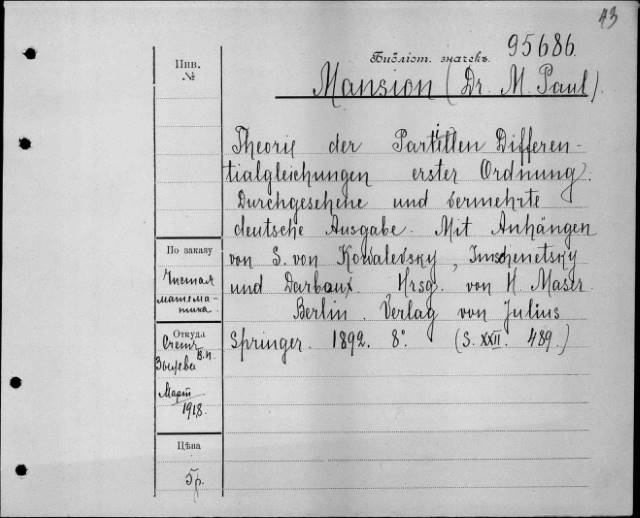 43
95686
Библіот. значекъ
Mansion (Dr. M. Paul).
Инв.
№
Theorie der Partiellen Differen-
tialgleichungen erster Ordnung.
Durchgesehene und vermehrte
deutsche Ausgabe. Mit Anhängen
von S. von Kowalevsky, Imschenetsky
und Darboux. Hrsg. von H. Maser.
Berlin. Verlag von Julius
Springer. 1892. 8°. (S. XXII. 489.)
По заказу
Чистая
матема-
тика
Откуда
Счетъ
В.П.
Зыкова
Март
1918.
Цѣна
5р.